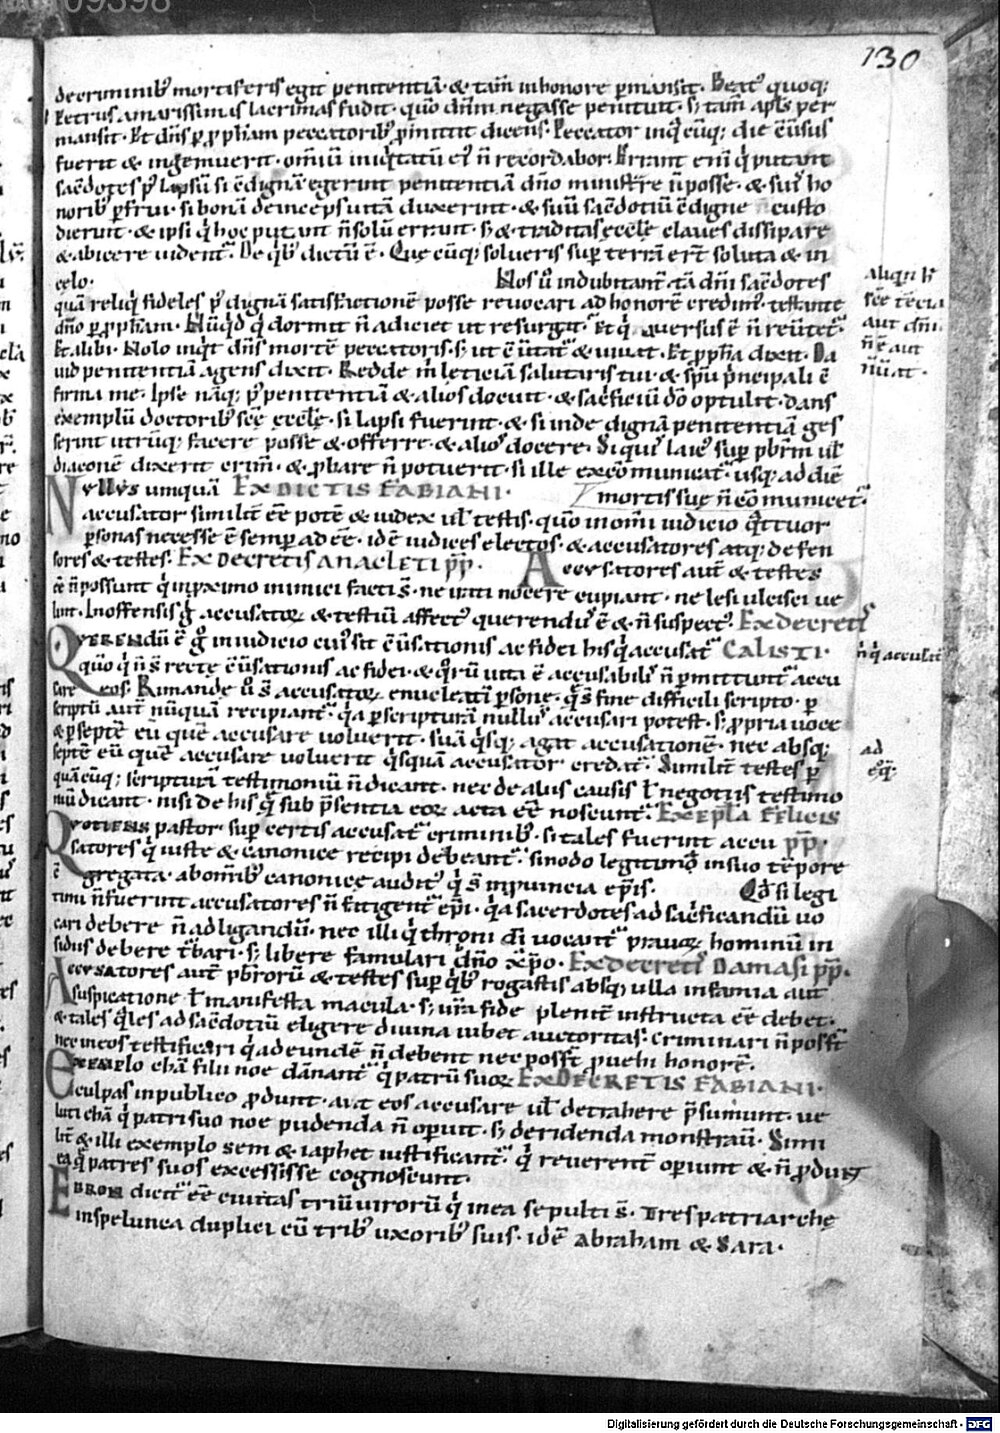 130
decriminib; mortiferis egit penitentiā & tam̄ in honore p̄mansit. Beatꝰ quoq;
Petrus amarissimas lacrimas fudit. quō dn̄m negasse penituit. s; tam̄ apl's per
mansit. Et dn̄s p̱ p̱ph̄am peccatorib; p̱mittit dicens. Peccator inq̇ cūq; die c̄ūsus
fuerit & ingemuerit. om̄iū iniq̇tatū eiꝰ n̄ recordabor. Errant eni q̇ putant
sac̄dotes p̱ lapsū si c̄dignā egerint penitentiā dn̄o ministrare n̄ posse. & suis ho
norib; p̱frui. si bonā deinceps uitā duxerint. & suū sac̄dotiū c̄digne custo
dierint. & ipsi q̇ hoc putant n̄ solū errant. s; & traditas eccl̄e claues dissipare
& abicere uident᷑. De q̇b; dictū ē. Que cūq; solueris sup̱ terrā ert̄ soluta & in
celo. Nos ū indubitant̄ tā dn̄i sac̄dotes
quā reliq̇ fideles p̱ dignā satisfactionē posse reuocari ad honorē credimꝰ. testante
dn̄o p̱ p̱ph̄am. Nūq̇d q̇ dormit n̄ adiciet ut resurgat. Et q̇ auersus ē n̄ reūtet᷑.
Et alibi. Nolo inq̇t dn̄s mortē peccatoris. s; ut c̄ūtat᷑ & uiuat. Et p̱ph̄a dixit. Da
uid penitentiā agens dixit. Redde m̄ leticiā salutaris tui. & sp̄u p̱ncipali c̄
firma me. Ipse nāq; p̱ penitentiā & alios docuit. & sac̄ficiū dō optulit. dans
exemplū doctorib; sc̄e eccl̄e. si lapsi fuerint. & si inde dignā penitentiā ges
serint utrūq; facere posse & offerre. & aliosꝰ docere. Si quis laicꝰ sup̱ pb̄rm ul̄
diaconē dixerit crim̄. & p̱bare n̄ potuerit. si ille excōmunicat᷑. usq; ad diē
mortis sue n̄ cōmunicet᷑.
Nullus umquā EX DICTIS FABIANI.
accusator similit̄ ēē potē & iudex ul̄ testis. quō in om̄i iudicio q̇ttuor
p̱sonas necesse ē semp̱ adēē. idē iudices electos. & accusatores atq; defen
sores & testes. EX DECRETIS ANACLETI PP̄. Accusatores aut̄ & testes
ēē n̄ possunt q̇ in p̱ximo inimici facti s̄. ne irati nocere cupiant. ne lesi ulcisci ue
lint. Inoffensis g̊ accusatoꝝ & testiū affectꝰ querendꝰ ē & n̄ suspectꝰ. EX DECRETIS
CALISTI.
Querendū ē g̊ in iudicio cuiꝰ sit c̄ūsationis ac fidei his q̇ accusat᷑
quō q̇ n̄ s̄ recte c̄ūsationis ac fidei. & q̊rū uita ē accusabilis n̄ p̱mittunt᷑ accu
sare eos. Rimande ū s̄ accusatoꝝ enucleati p̱sone. q̇ s̄ fine difficili scripto. p̱
scriptū aut̄ nūquā recipiant᷑. q̇a p̱ scripturā nullus accusari potest. s; p̱pria uoce
& p̱septē eū quē accusare uoluerit. suā q̇sq; agat accusationē. nec absq;
septē eū quē accusare uoluerit q̇squā accusator credat᷑. Similit̄ testes p̱
quācūq; scripturā testimoniū n̄ dicant. nec de aliis causis l̄ negotiis testimo
niū dicant. nisi de his q̇ sub p̄sentia eoꝝ acta ēē noscunt᷑. EX EPLA FELICIS
PP̄.
Quotiens pastor sup̱ certis accusat᷑ criminib;. si tales fuerint accu
satores q̇ iuste & canonice recipi debeant᷑. sinodo legitimo in suo tēpore
c̄gregata. ab om̄ib; canonice auditꝰ q̇ s̄ in p̱uincia ep̄is. Qd̄ si legi
timi n̄ fuerint accusatores n̄ fatigent᷑ ep̄i. q̇a sacerdotes ad sac̄ficandū uo
cari debere n̄ ad ligandū. nec illi q̇ throni di uocant᷑ prauoꝝ hominū in
sidiis debere t̄bari. s; libere famulari dn̄o xp̄o. EX DECRETIS DAMASI PP̄.
Accusatores aut̄ pb̄rorū & testes sup̱ q̇b; rogastis absq; ulla infamia aut
suspicatione l̄ manifesta macula. s; ūra fide plenit̄ instructa ēē debet.
& tales q̇les ad sac̄dotiū eligere diuina iubet auctoritas. Criminari n̄ posst̄
nec in eos testificari q̇ ad eundē n̄ debent nec posst̄ p̱uehi honorē.
EX DECRETIS FABIANI.
Exemplo chā filii noe dānant᷑ q̇ patrū suoꝝ
culpas in publico p̱dunt. aut eos accusare ul̄ detrahere p̄sumunt. ue
luti chā q̇ patri suo noe pudenda n̄ operuit. s; deridenda monstrauit. Simi
lit̄ & illi exemplo sem & iaphet iustificant᷑. q̇ reuerent̄ operiunt & n̄ p̱dunt
ea q̇ patres suos excessisse cognoscunt.
Ebron dicit᷑ ēē ciuitas triū uirorū q̇ in ea sepulti s̄. Tres patriarche
in spelunca duplici cū trib; uxorib; suis. idē Abraham & Sara.
aut dn̄i
n̄ ē aut
ad
Digitalisierung gefördert durch die Deutsche Forschungsgemeinschaft - DFG